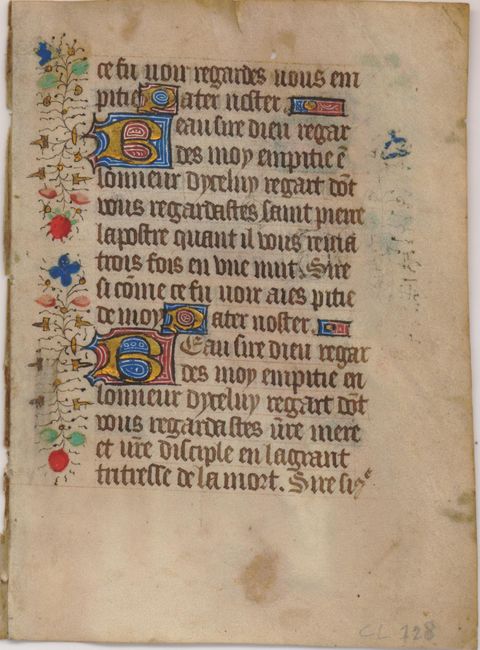 ce fu uoir regardes nous em
pitie Pater noster.
Beau sire dieu regar
des moy em pitie ē
lonneur dyceluy regart dōt
vous regardastes saint pierre
lapostre quant il vous renia
trois fois en vne nuit. Sire
si cōme ce fu uoir aies pitie
de moy Pater noster.
BEau sire dieu regar
des moy em pitie en
lonneur dyceluy regart dōt
vous regardastes ūre mere
et ūre disciple en la grant
tritresse de la mort. Sire si
CL 128